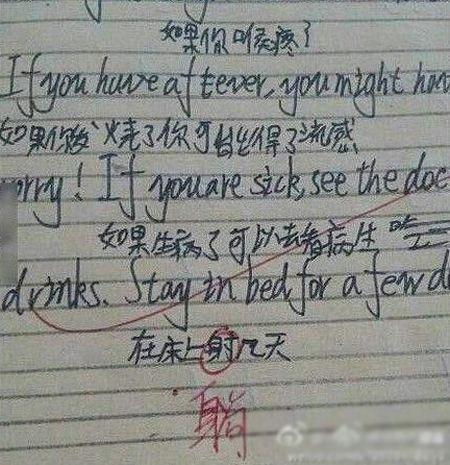 如果你喉疼了
If you have a fever, you might hav
如果你发烧了你可能得了流感
orry! If you are sick, see the doc
如果生病了可以去看病生
drinks. Stay in bed for a few d
在床上射几天
躺